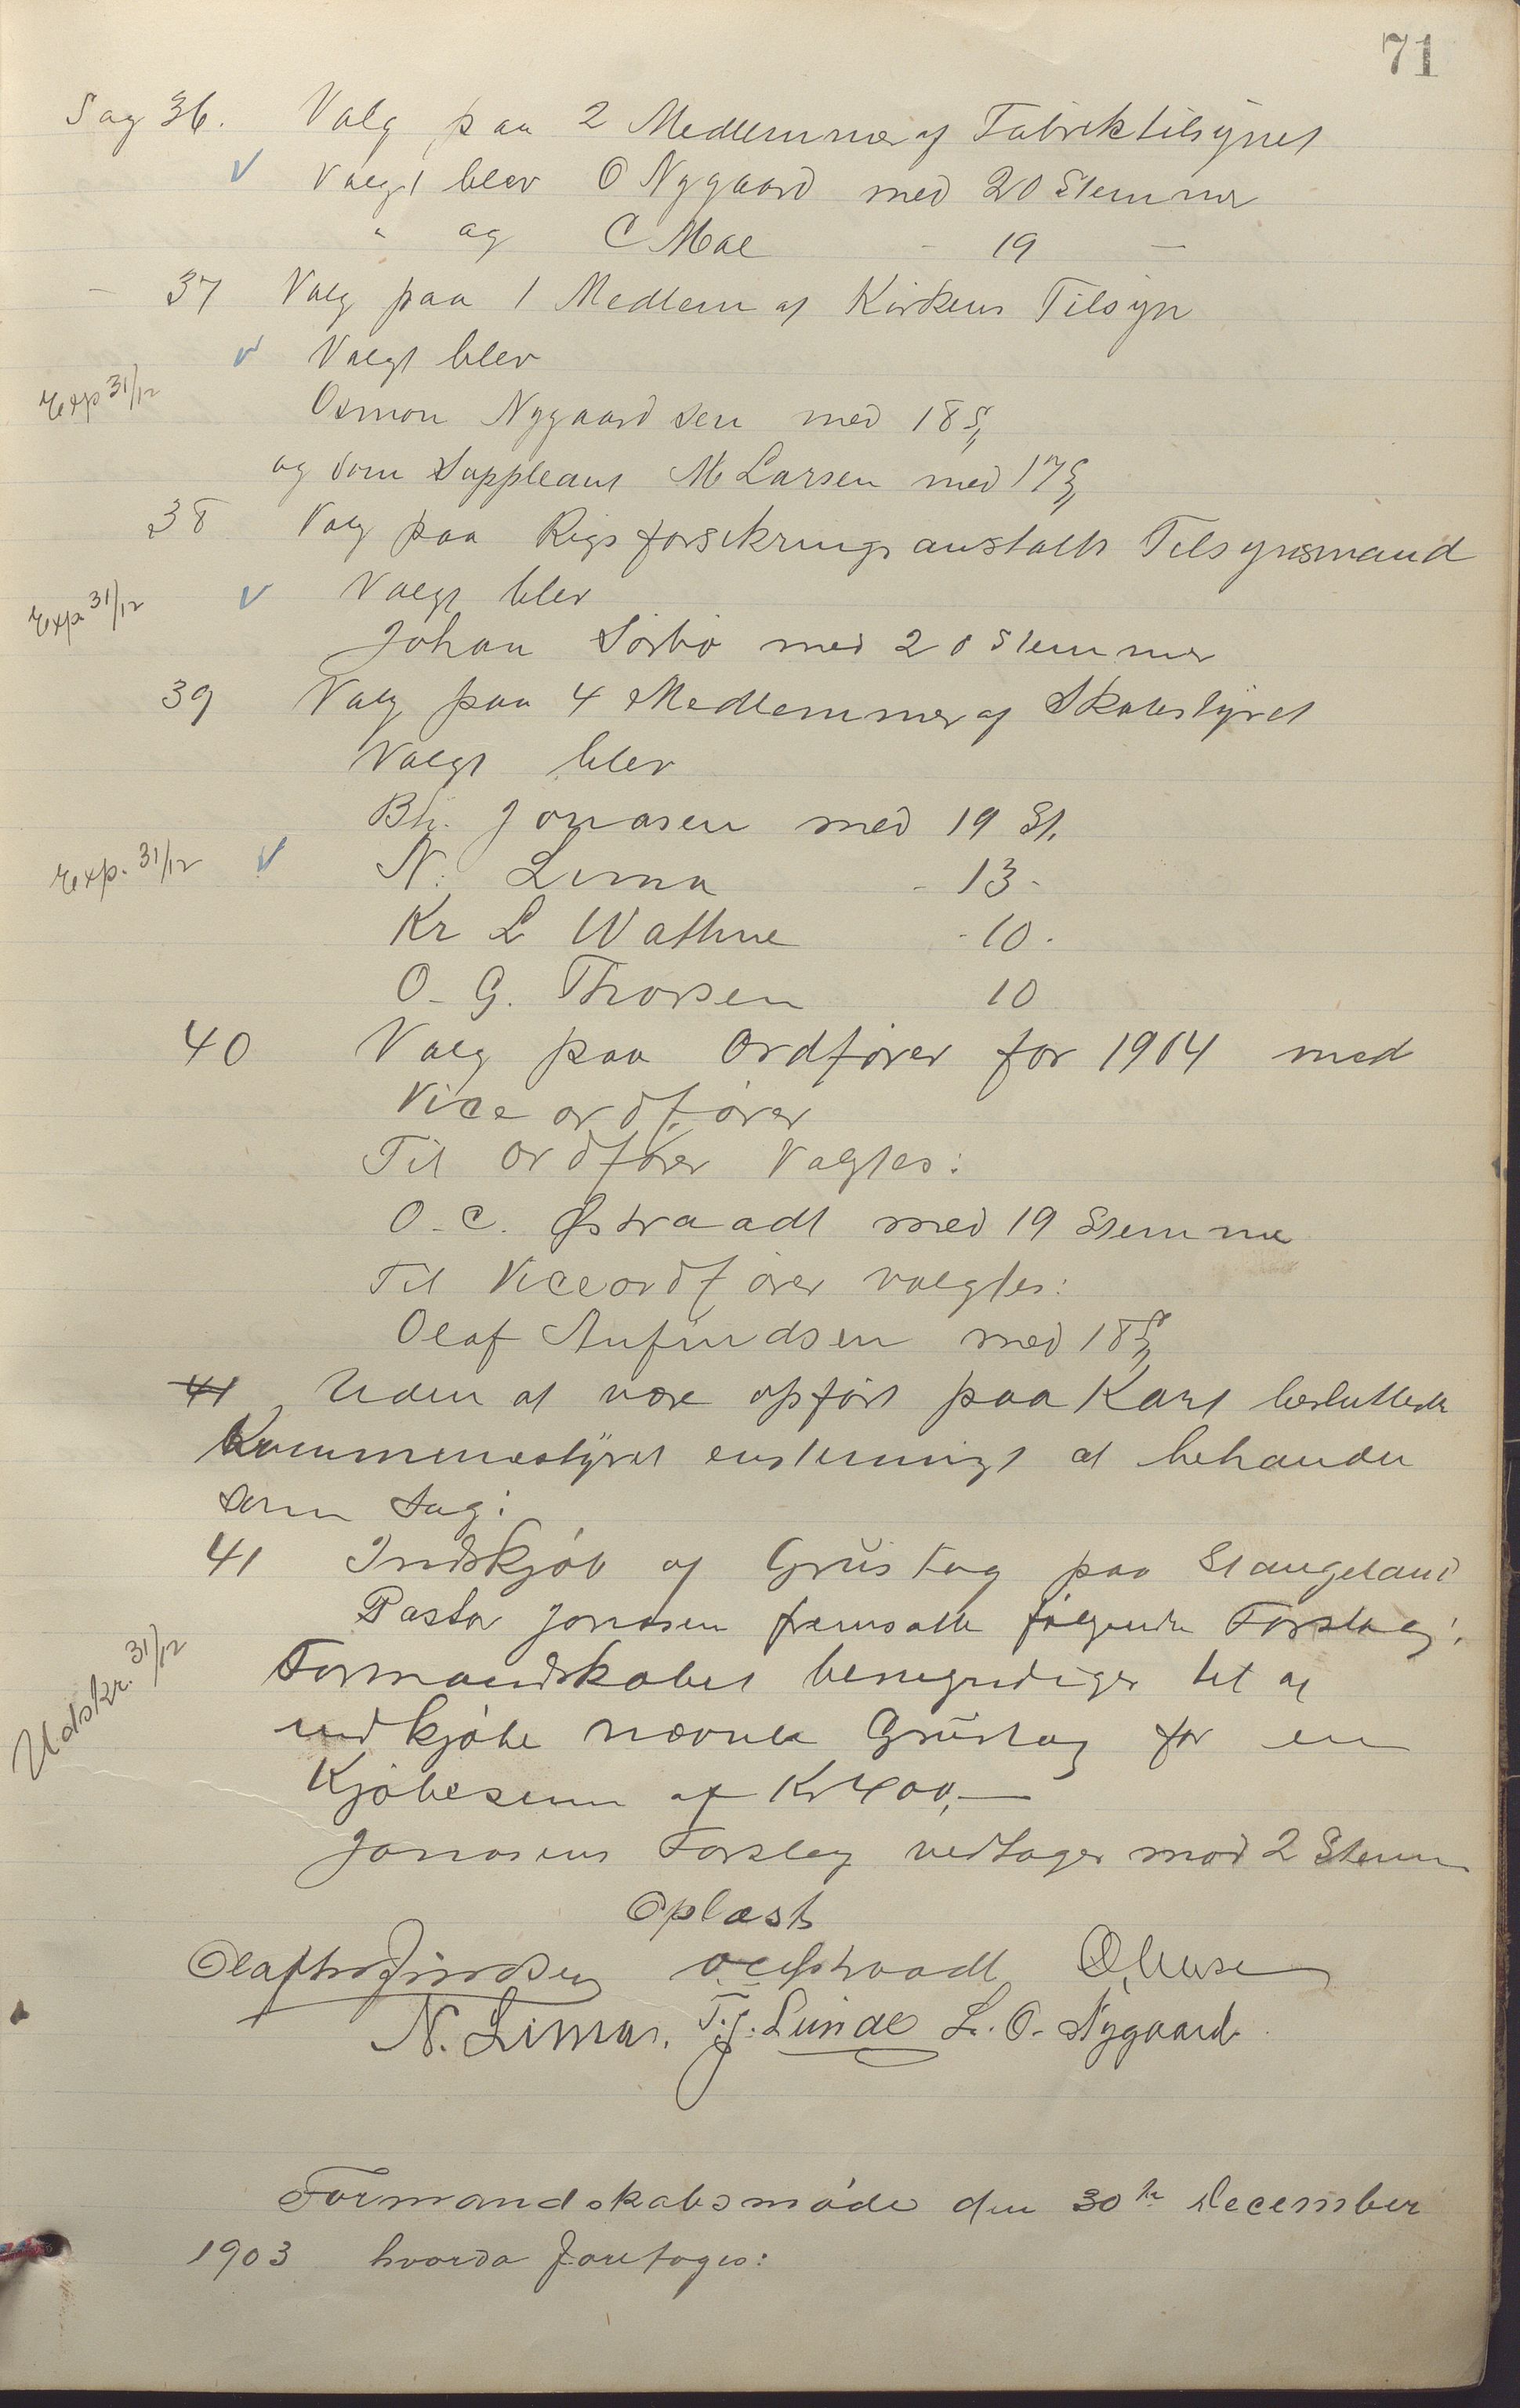 71
Sag 36. Valg paa 2 Medlemmer af Fabriktilsynet
Valgt blev O Nygaard med 20 Stemmer
" og C Moe - 19 -
- 37 Valg paa 1 Medlem af Kirkens Tilsyn
Valgt blev
Exp 31/12
Osmon Nygaard sen med 18 St
og som Suppleant M Larsen med 17 St
38 Valg paa Rigsforsikringsanstalts Tilsynsmand
Exp. 31/12 Valgt blev
Johan Sörbö med 20 Stemmer
39 Valg paa 4 Medlemmer af Skolestyret
Valgt blev
Bh. Jonasen med 19 St.
Exp. 31/12 N. Lima - 13 -
Kr L Wathne - 10 -
O. G. Thorsen 10
40 Valg paa Ordförer for 1904 med
Vice ordförer
Til Ordförer Valgtes:
O. C. Østraadt med 19 Stemme
Til Viceordförer valgtes:
Olaf Anfindsen med 18 St
41 Uden at være opfört paa Kart besluttede
Kommunestyret enstemmigt at behandle
som Sag:
41 Indkjöb af Grustag paa Stangeland
Pastor Jonasen fremsatte fölgende Forslag:
Formandskabet bemyndiges til at
indkjöbe nævnte Grustag for en
Udskr. 31/12
Kjöbesum af Kr 400,-
Jonasens Forslag vedtages mod 2 Stemm
Oplæst
Olaf Anfindsen O C Østraadt
N. Lima. T. J. Lunde L. O. Nygaard.
Formandskabsmöde den 30te December
1903 hvorda foretoges: